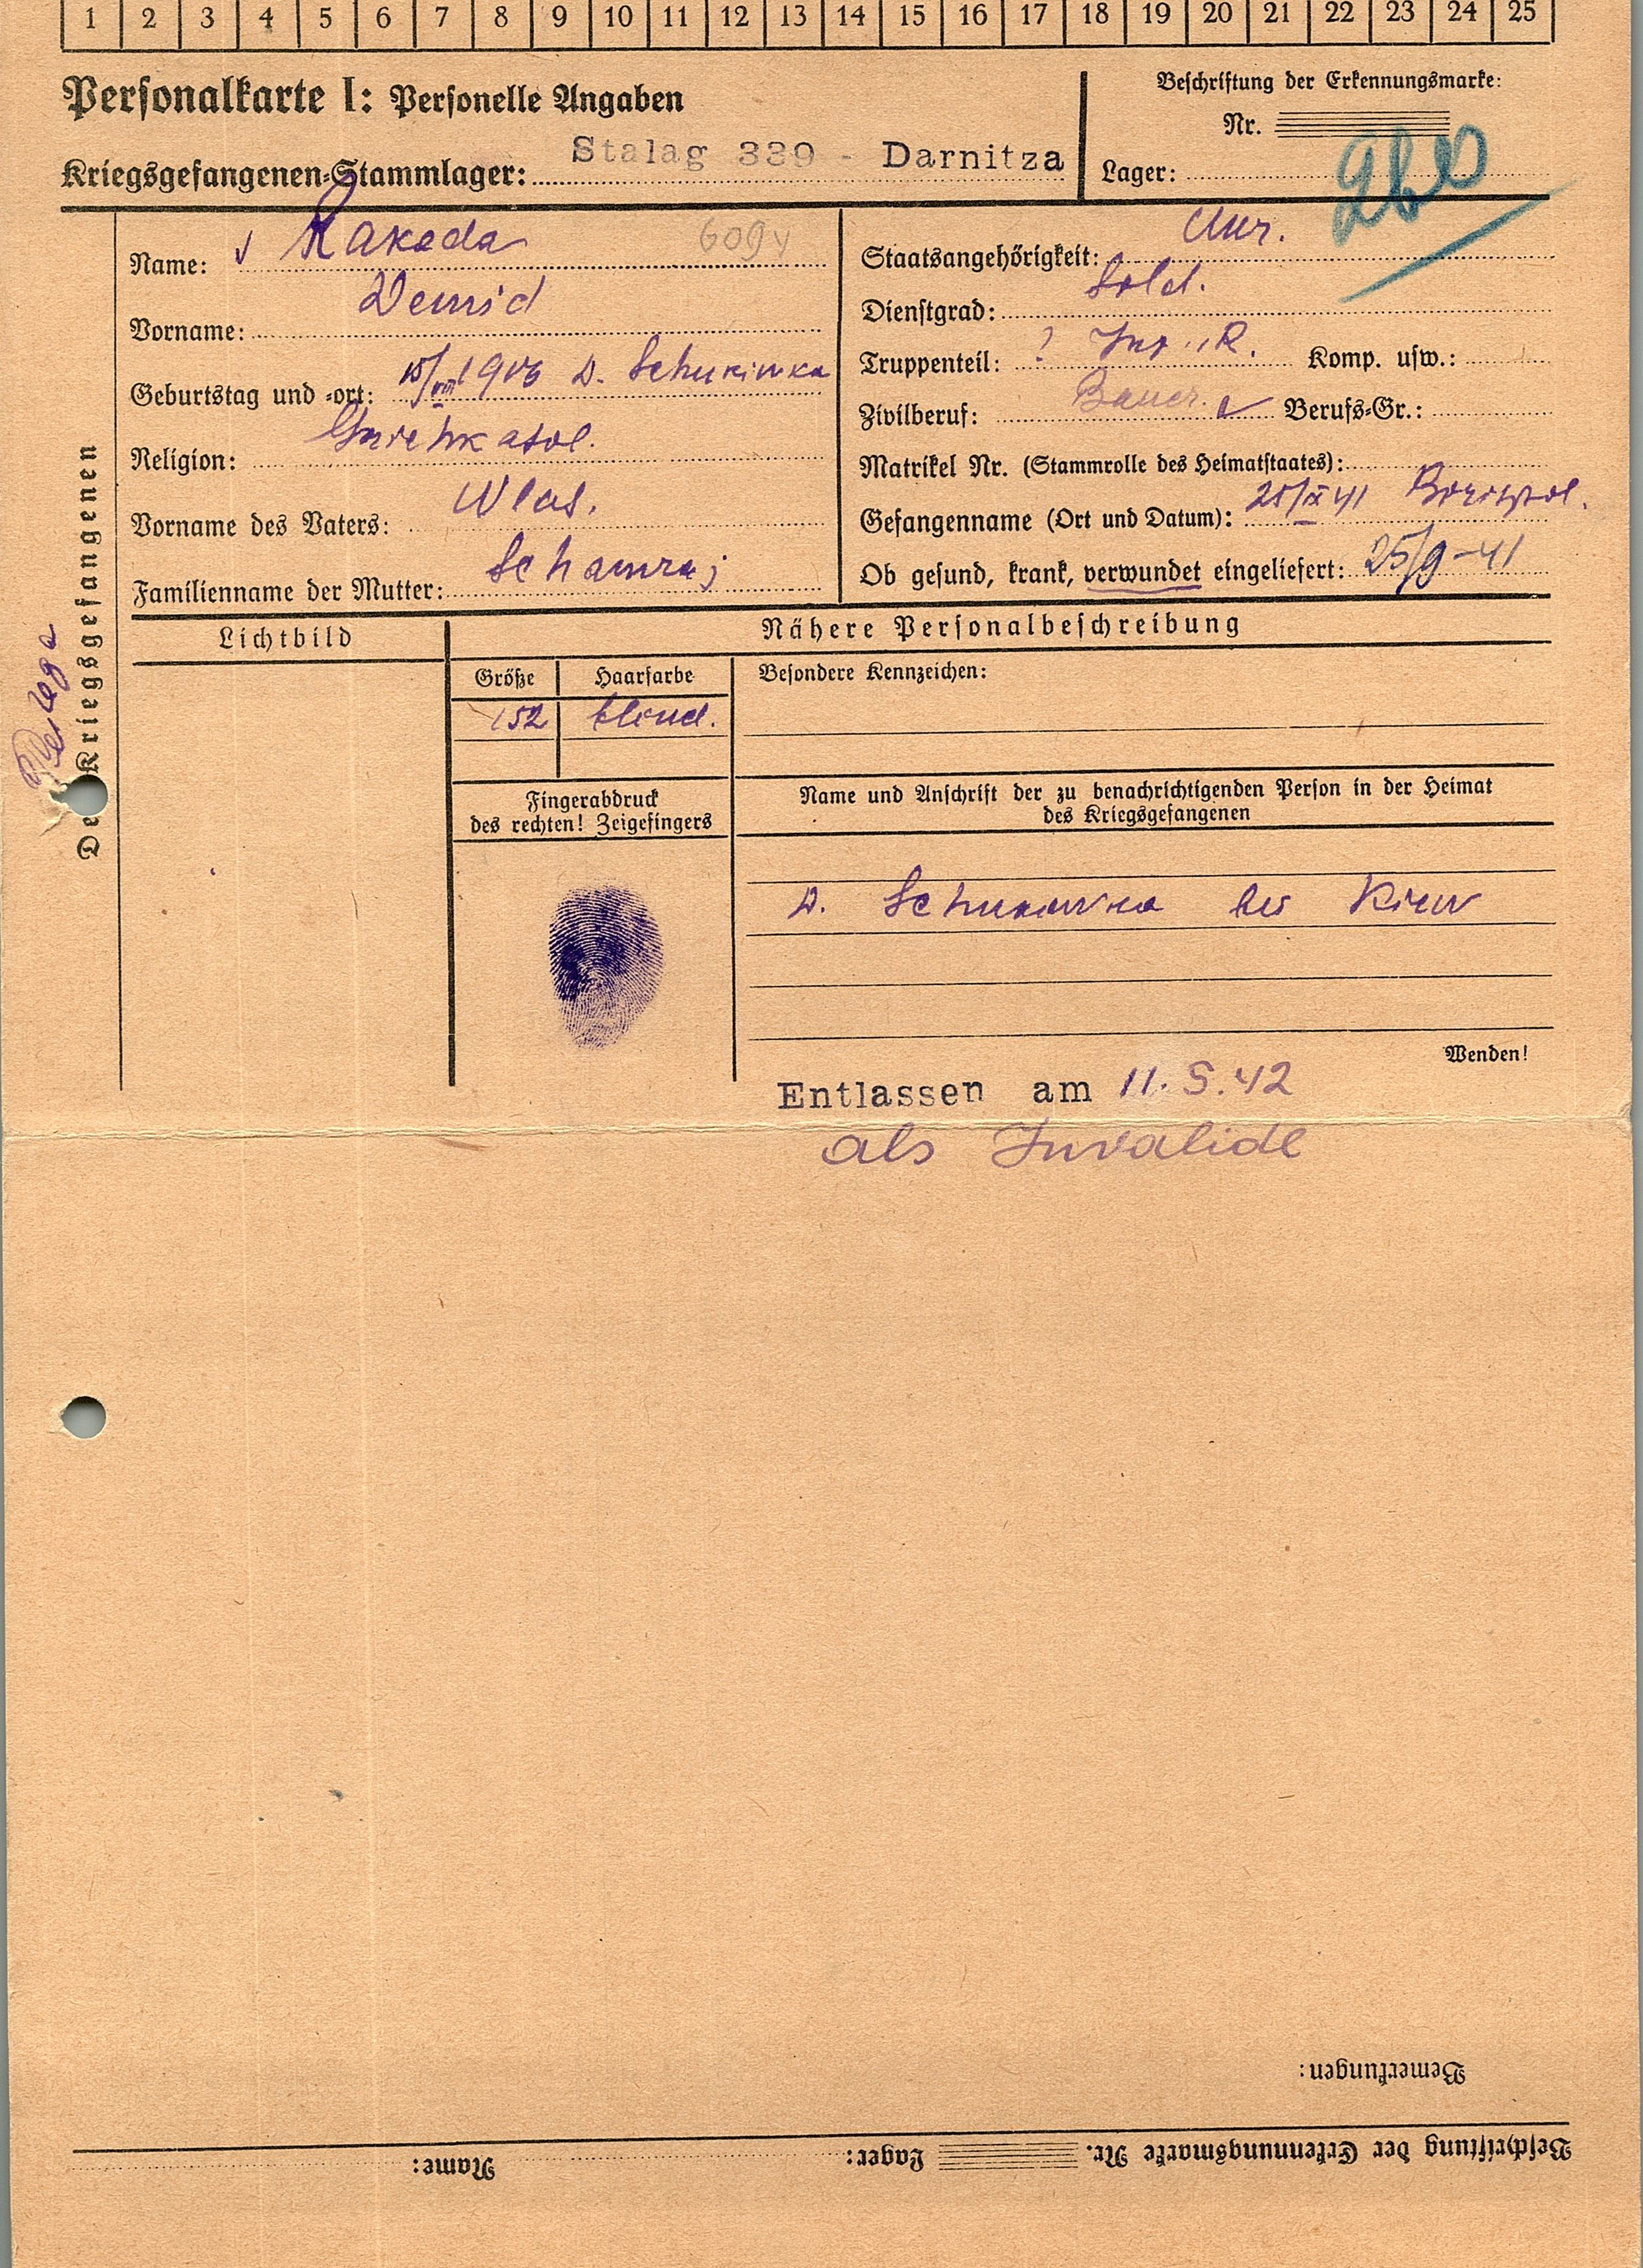 1 2 3 4 5 6 7 8 9 10 11 12 13 14 15 16 17 18 19 20 21 22 23 24 25
Personalkarte I: Personelle Angaben
Kriegsgefangenen-Stammlager: Stalag 339 - Darnitza
Beschriftung der Erkennungsmarke:
Nr.
Lager:
Des Kriegsgefangenen
Name: Rakada
Vorname: Demid
Geburtstag und -ort: 15/VIII 19
Religion:
Vorname des Vaters: Wlas.
Familienname der Mutter: Schamraj
Staatsangehörigkeit: Ukr.
Dienstgrad: Sold.
Truppenteil: ? Inf. R. Komp. usw.:
Zivilberuf: Bauer. Berufs-Gr.:
Matrikel Nr. (Stammrolle des Heimatstaates):
Gefangenname (Ort und Datum): 25/IX 41 Borispol.
Ob gesund, krank, verwundet eingeliefert: 25/9-41
Lichtbild
Nähere Personalbeschreibung
Größe Haarfarbe
152 blond.
Besondere Kennzeichen:
Fingerabdruck
des rechten! Zeigefingers
Name und Anschrift der zu benachrichtigenden Person in der Heimat
des Kriegsgefangenen
D. bei Kiew
Wenden!
Entlassen am 11.5.42
als Invalide
Bemerkungen:
Beschriftung der Erkennungsmarke Nr. Lager: Name: